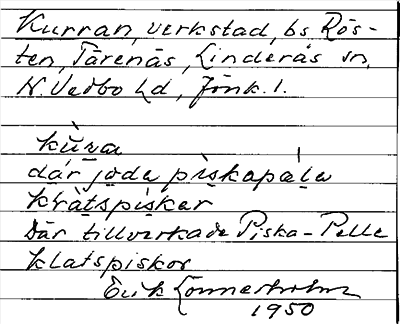 Kurran, verkstad, bs Rös-
ten, Tärenäs, Linderås sn,
N. Vedbo hd, Jönk. l.
kùra
där jode piskapála
kràtspisker
Där tillverkade Piska-Pelle
klatspiskor
Erik Lönnerholm
1950